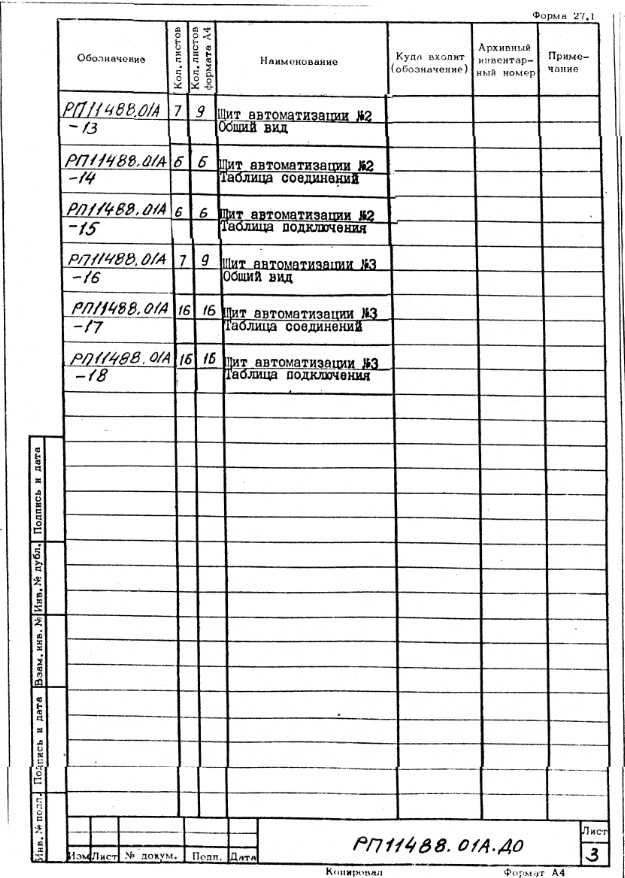 Форма 27.1
Обозначение
Кол. листов
Кол. листов формата А4
Наименование
Куда входит (обозначение)
Архивный инвентарный номер
Примечание
РП11488.01А 7 9 Щит автоматизации №2
-13 Общий вид
РП11488.01А 6 6 Щит автоматизации №2
-14 Таблица соединений
РП11488.01А 6 6 Щит автоматизации №2
-15 Таблица подключения
РП11488.01А 7 9 Щит автоматизации №3
-16 Общий вид
РП11488.01А 16 16 Щит автоматизации №3
-17 Таблица соединений
РП11488.01А 16 16 Щит автоматизации №3
-18 Таблица подключения
Подпись и дата
Инв. № дубл.
Взам. инв. №
Подпись и дата
Инв. № подл.
Изм Лист № докум. Подп. Дата
РП11488.01А.ДО
Лист
3
Копировал Формат А4